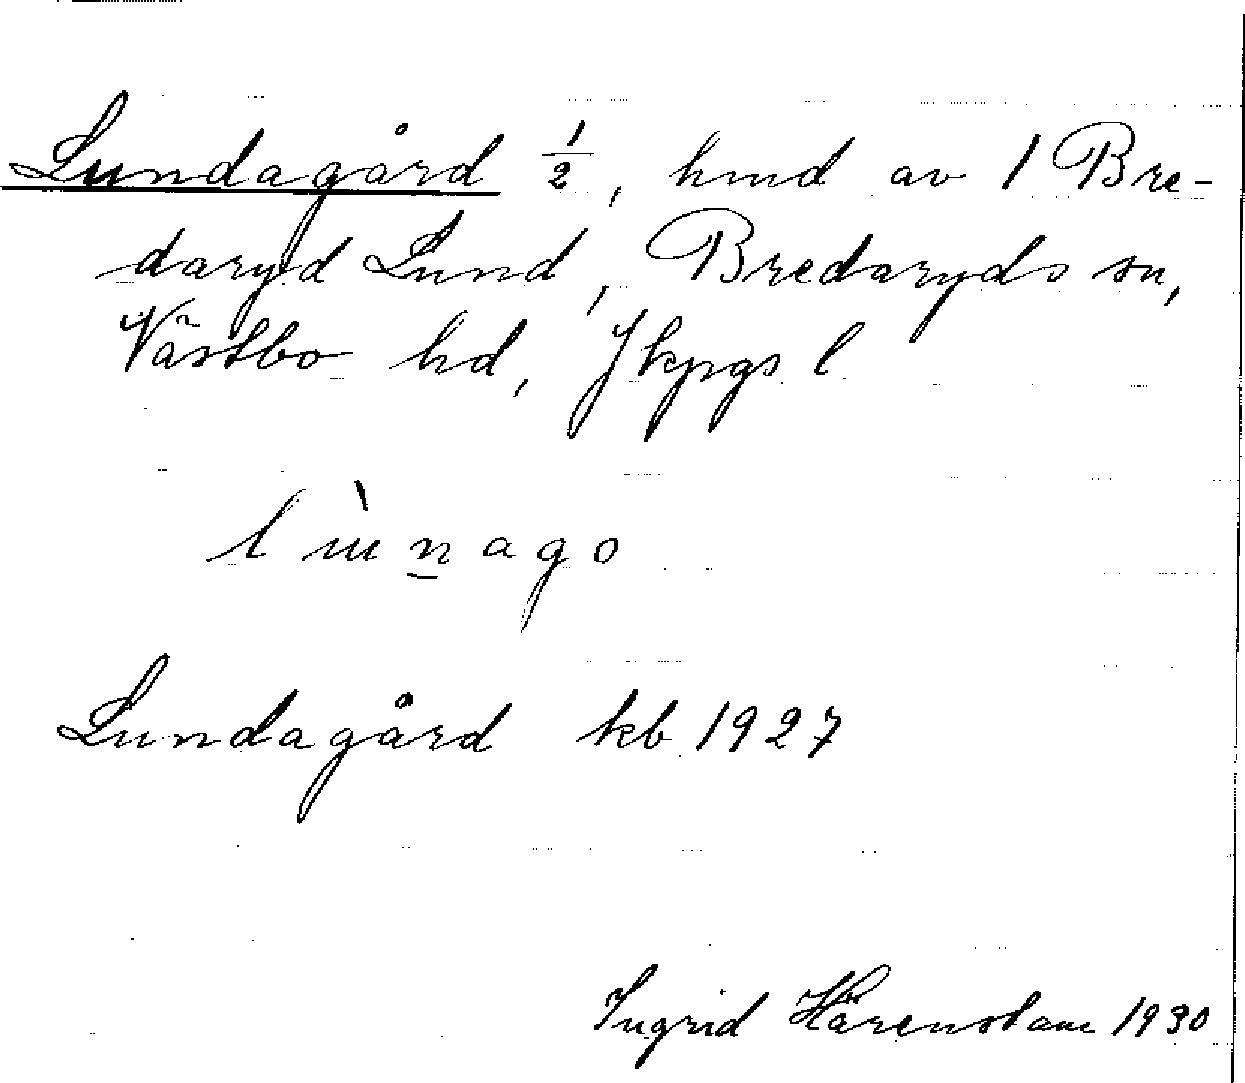 Lundagård 1/2, hmd av 1 Bre-
daryd Lund, Bredaryds sn,
Västbo hd, Jkpgs l
lùnago
Lundagård kb 1927
Ingrid Härenstam 1930